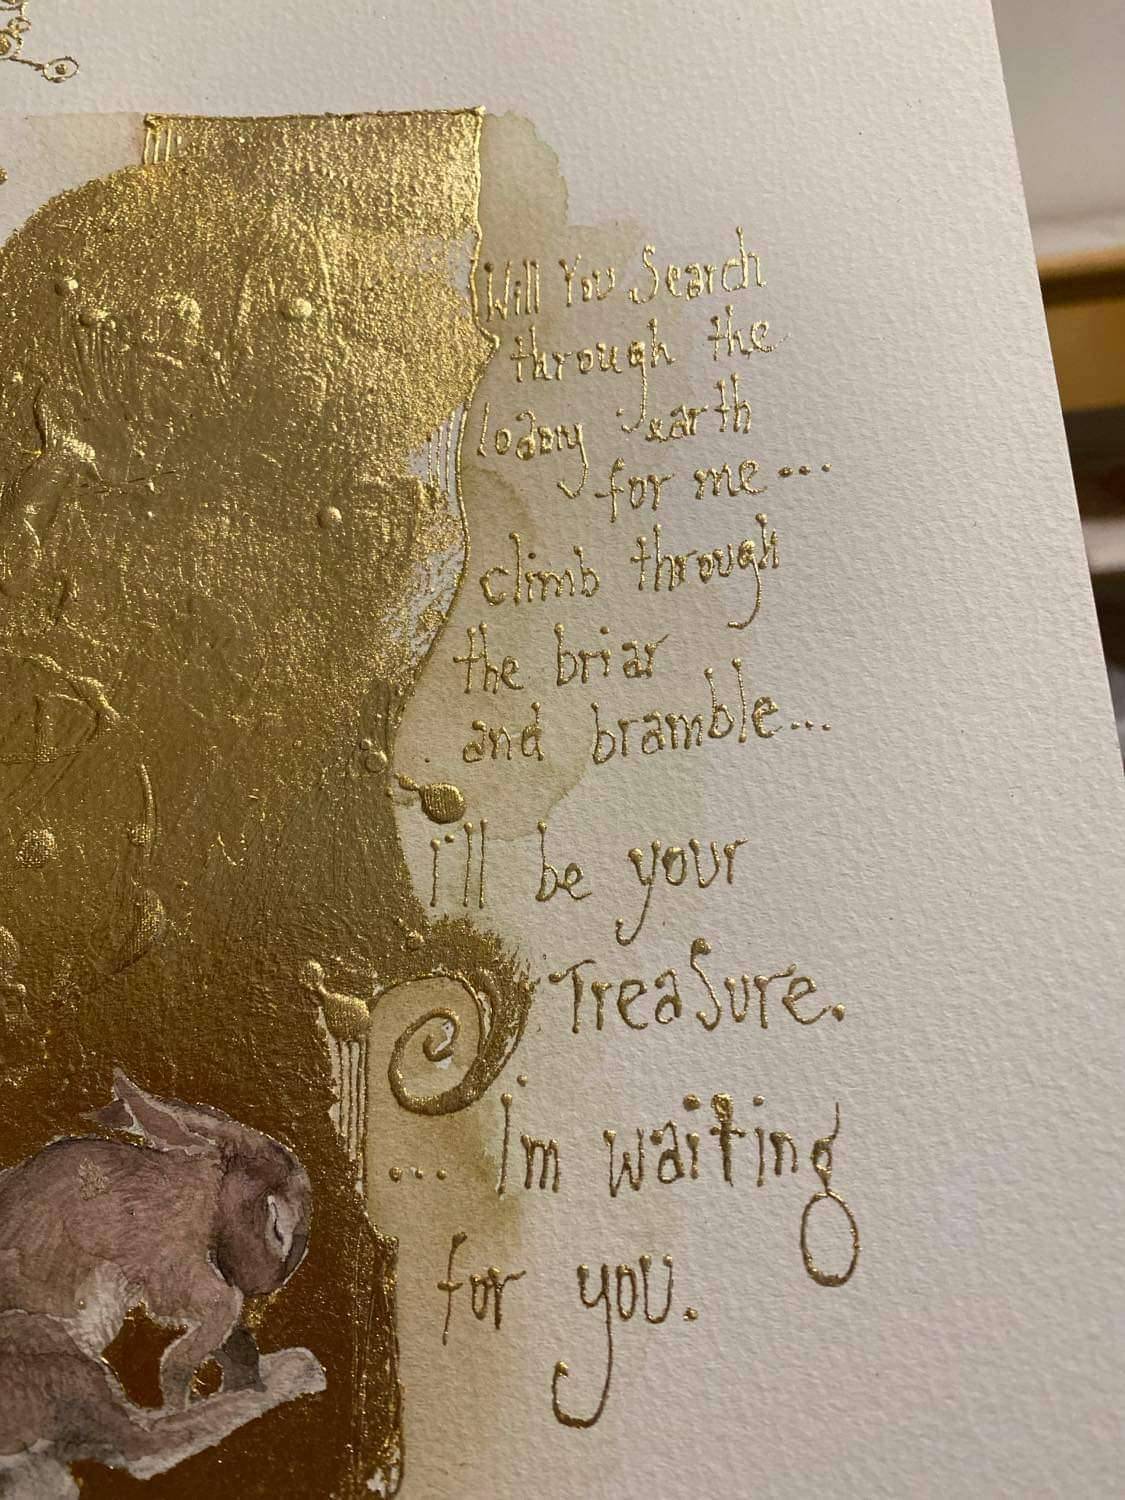 Will You Search
through the
loamy earth
for me...
climb through
the briar
and bramble...
i'll be your
Treasure.
... i'm waiting
for you.